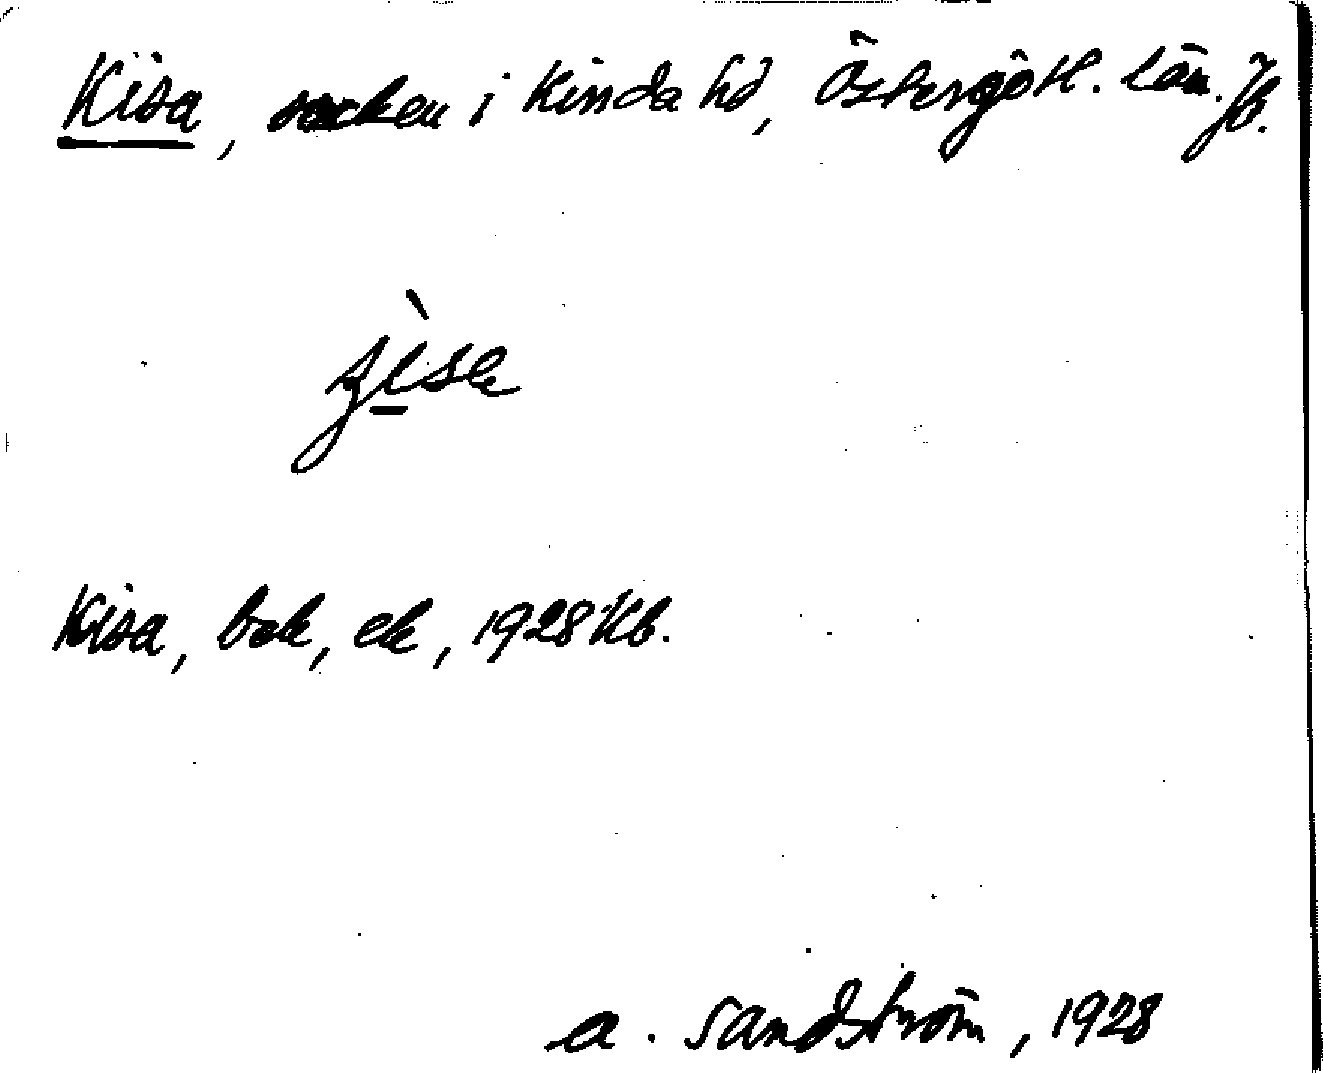 Kisa, socken i Kinda hd, Östergötl. län. Jb.
Kisa, bok, ek, 1928 Kb.
A. Sandström, 1928